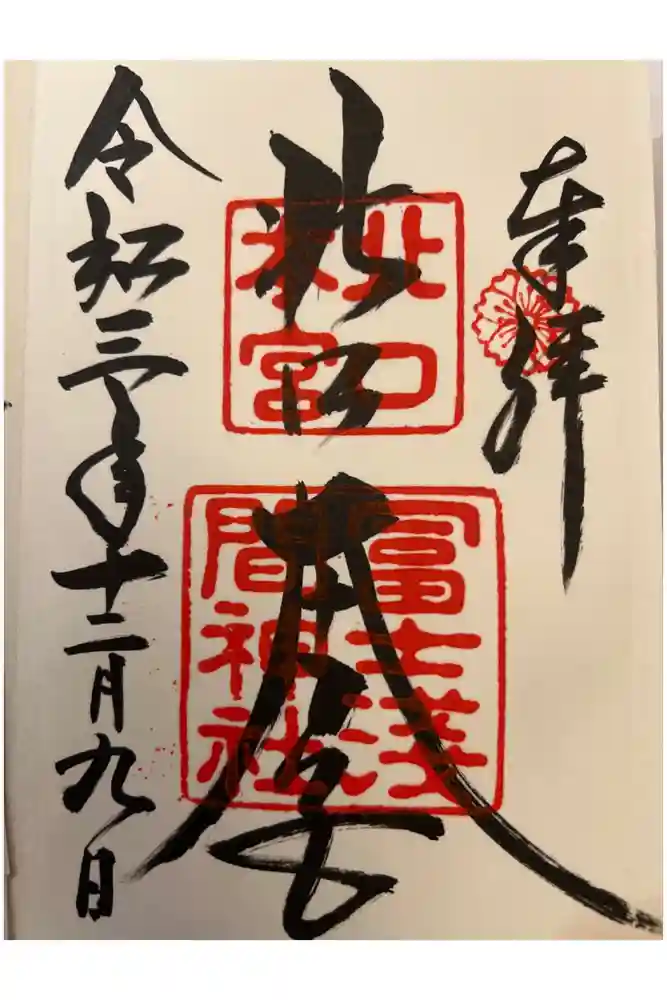 奉拝
北口本宮
北口
本宮
冨士淺
間神社
令和三年十二月九日